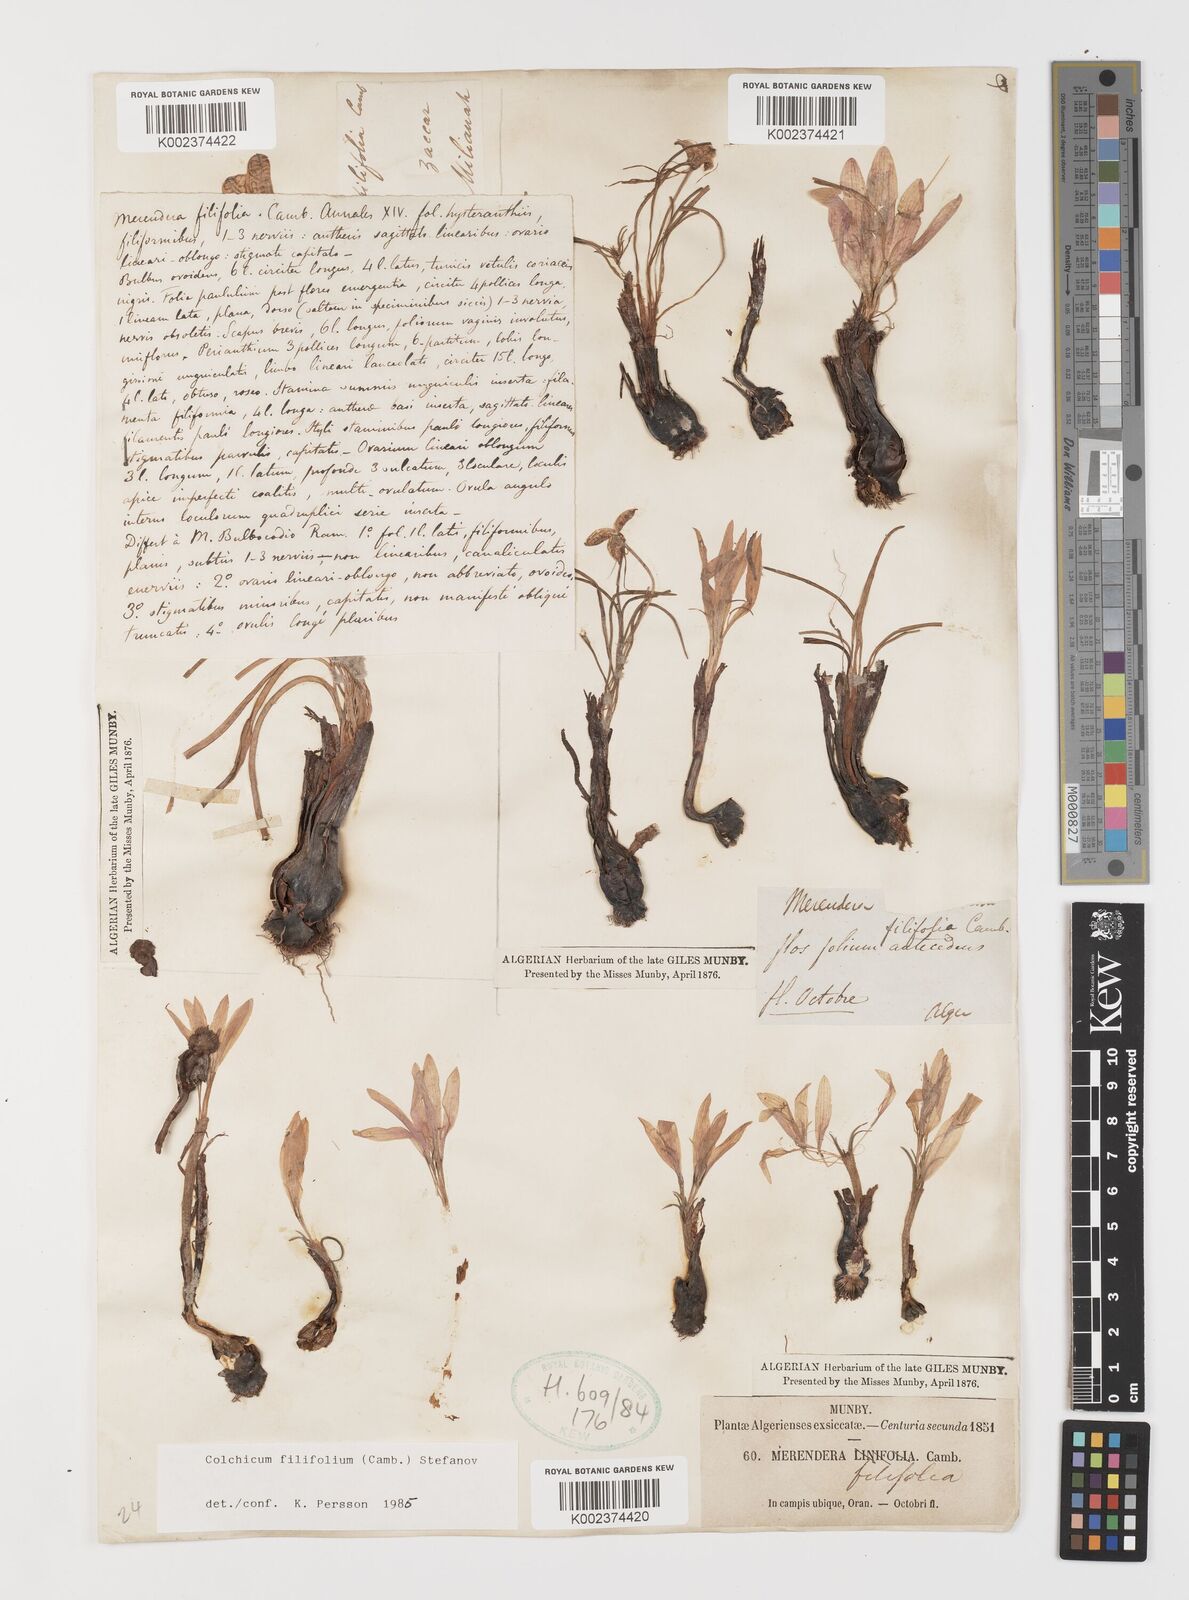 ROYAL BOTANIC GARDENS KEW
K002374422
ROYAL BOTANIC GARDENS KEW
K002374421
6
filifolia Camb
Zaccar
Milianah
Merendera filifolia. Camb. Annales XIV. fol. hysteranthiis,
filiformibus, 1-3 nerviis: antheris sagittato linearibus: ovario
lineari-oblongo: stigmate capitato—
Bulbus ovoideus, 6 l. circiter longus, 4 l. latus, tunicis vetulis coriaceis
nigris. Folia paululum post flores emergentia, circiter 4 pollices longa,
1 lineam lata, plana, dorso (saltem in speciminibus siccis) 1-3 nervia,
nervis obsoletis. Scapus brevis, 6 l. longus, foliorum vaginis involutus,
uniflorus. Perianthium 3 pollices longum, 6-partitum, lobis lon-
gissime unguiculatis, limbo lineari lanceolato, circiter 15 l. longo,
4 l. lato, obtuso, roseo. Stamina summis unguiculis inserta: fila-
menta filiformia, 4 l. longa: antheræ basi insertæ, sagittato lineares
filamentis paulò longiores. Styli staminibus paulò longiores, filiformes
stigmatibus parvulis, capitatis— Ovarium lineari oblongum
3 l. longum, 1 l. latum, profonde 3 sulcatum, 3 loculare, loculis
apice imperfecti coalitis, multi-ovulatum. Ovula angulo
interno loculorum quadruplici serie inserta—
Differt à M. Bulbocodio Ram. 1º fol. 1 l. latis, filiformibus,
planis, subtus 1-3 nerviis—non linearibus, canaliculatis
enerviis: 2º ovario lineari-oblongo, non abbreviato, ovoideo,
3º stigmatibus minoribus, capitatis, non manifestè obliquè
truncatis, 4º ovulis longè pluribus
ALGERIAN Herbarium of the late GILES MUNBY.
Presented by the Misses Munby, April 1876.
ALGERIAN Herbarium of the late GILES MUNBY.
Presented by the Misses Munby, April 1876.
Merendera
filifolia Camb.
flos folium antecedens
fl. Octobre
Alger
ALGERIAN Herbarium of the late GILES MUNBY.
Presented by the Misses Munby, April 1876.
MUNBY.
Plantæ Algerienses exsiccatæ.—Centuria secunda 1851
60. MERENDERA LINIFOLIA. Camb.
filifolia
In campis ubique, Oran. — Octobri fl.
ROYAL BOTANIC GARDENS
H. 609/84
176
KEW
Colchicum filifolium (Camb.) Stefanov
det./conf. K. Persson 1985
24
ROYAL BOTANIC GARDENS KEW
K002374420
Don Williams
M000827
centimeters
Kew
Royal Botanic Gardens
copyright reserved
0 1 2 3 4 5 6 7 8 9 10
cm